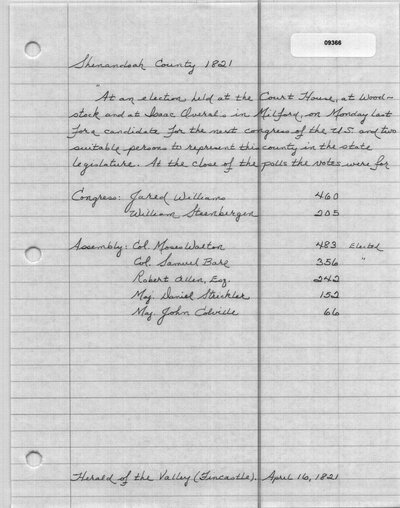 09366
Shenandoah County 1821
At an election held at the Court House, at Wood-
stock and at Isaac Overal's in Milford, on Monday last
for a candidate for the next congress of the U.S. and two
suitable persons to represent this county in the state
legislature. At the close of the polls the votes were for
Congress: Jared Williams 460
William Steenbergen 205
Assembly: Col. Moses Walton 483 Elected
Col. Samuel Bare 356 "
Robert Allen, Esq. 242
Maj. Daniel Strickler 152
Maj. John Colville 66
Herald of the Valley (Fincastle). April 16, 1821